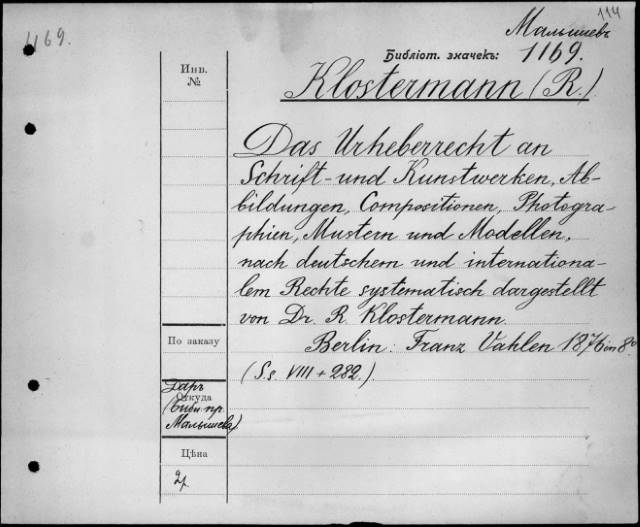 114
Малышевъ
1169.
Библіот. значекъ: 1169.
Инв.
№
Klostermann (R.)
Das Urheberrecht an
Schrift- und Kunstwerken, Ab-
bildungen, Compositionen, Photogra-
phien, Mustern und Modellen,
nach deutschem und internationa-
lem Rechte systematisch dargestellt
von Dr. R. Klostermann.
Berlin: Franz Vahlen 1876 in 8º
(S.s. VIII + 282.)
По заказу
Даръ
Откуда
(Библ. пр.
Малышева)
Цѣна
2р.